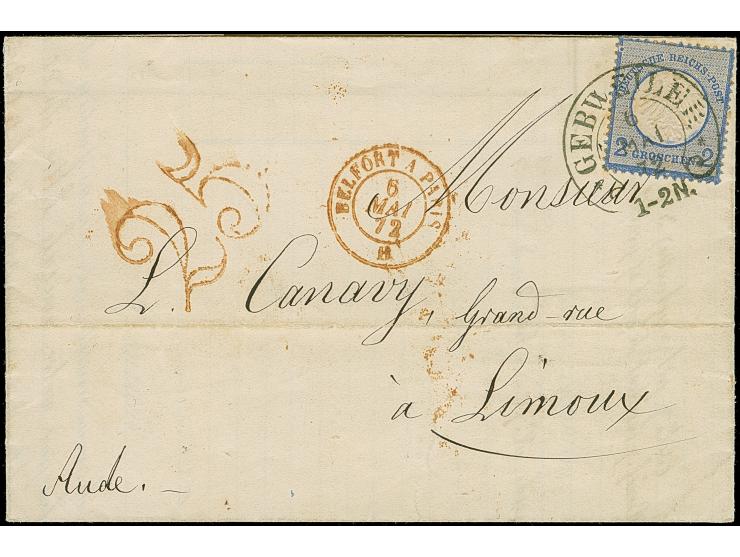 DEUTSCHE REICHS-POST
2 GROSCHEN 2
GEBWEILER
6
1-2N.
BELFORT A PARIS
6
MAI
72
25
Monsieur
L. Canavy, Grand-rue
à Limoux
Aude.